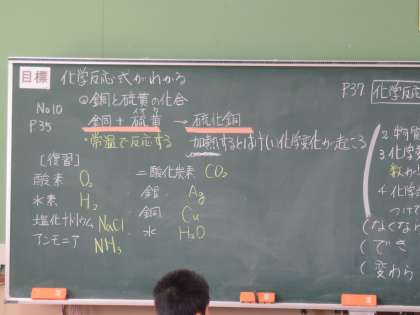 目標 化学反応式がわかる
No10
P35
②銅と硫黄の化合
イオウ
銅 + 硫黄 → 硫化銅
・常温で反応する 加熱するとはげしい化学変化が起こる
[復習]
酸素 O₂
水素 H₂
塩化ナトリウム NaCl
アンモニア NH₃
二酸化炭素 CO₂
銀 Ag
銅 Cu
水 H₂O
P37 化学反応
2 物質
3 化学変
数わ
4 化学
つけて
(なくなら
(でき
(変わら